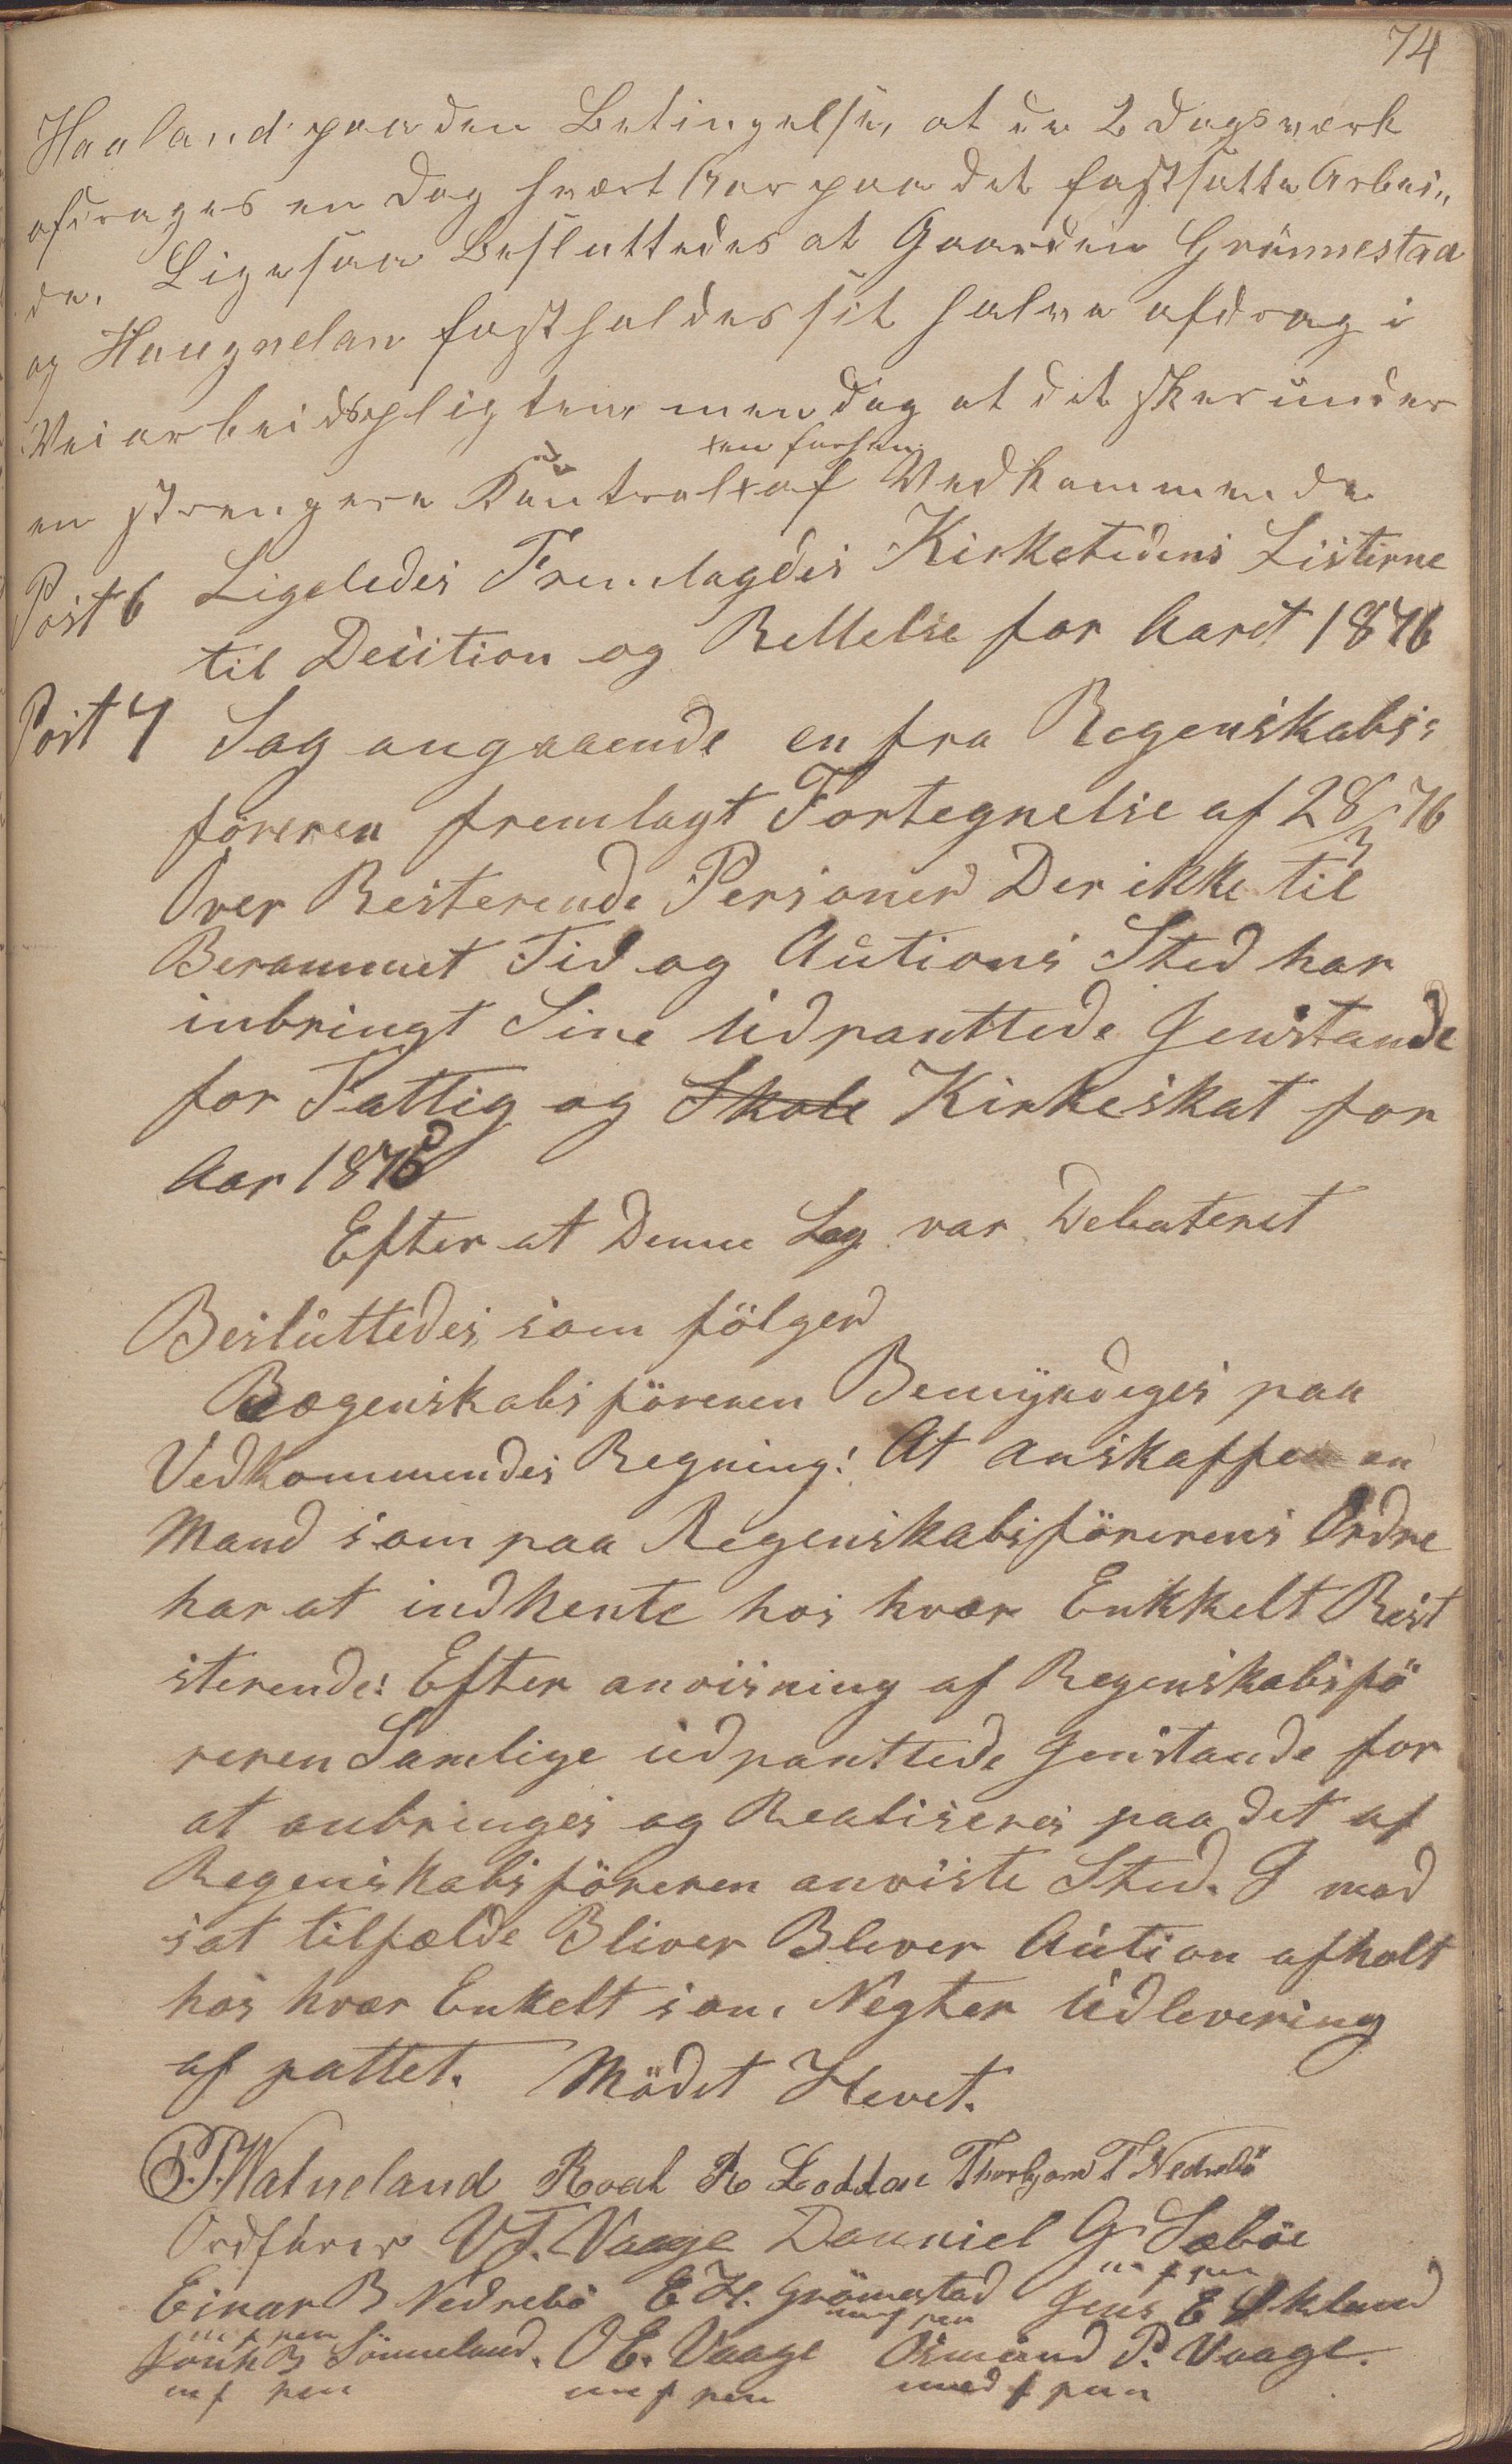 74
Haaland paa den Betingelse, at de 2 Dagsværk
afdrages en Dag hvært Aar paa det fastsatte Arbei„
de. Ligesaa Besluttedes at Gaarden Grönnestad
og Haugnelan fastholdes sit halve afdrag i
Veiarbeidspligten, men dog at det sker under
en strengere Kontrol af Vedkommende
Post 6 Ligeledes Fremlagdes Kirketidens Listerne
til Desition og Rettelse for Aaret 1876
Post 7 Sag angaaende en fra Regenskabs=
föreren fremlagt Fortegnelse af 28/3 76
Over Resterende Personer Der ikke til
Berammet Tid og Autions Sted har
inbringt Sine Udpanttede Genstande
for Fattig og Skole Kirkeskat for
Aar 1875
Efter at Denne Sag var Debateret
Besluttedes som fölger
Rægenskabsföreren Bemyndeges paa
Vedkommendes Regning: At anskaffe en
Mand som paa Regenskabsförerens Ordre
har at indhente hos hvær Enkkelt Rest
sterende: Efter anvisning af Regenskabsfö
reren Samlige udpanttede Genstande for
at anbringes og Realiseres paa det af
Regenskabsföreren anviste Sted. I mod
sat tilfælde Bliver Blever Aution afholt
hos hvær Enkelt som Negter Udlevering
af pattet. Mödet Hevet.
P.T. Watneland Roal R Loddan T Nedrebö
Ordförer V T. Vaage Danniel G Sæböe
Einar B Nedrebö E H. Grönnestad Jens E Ækland
Sönneland. O E. Vaage Osmund P. Vaage.
m f pen m f pen med f pen